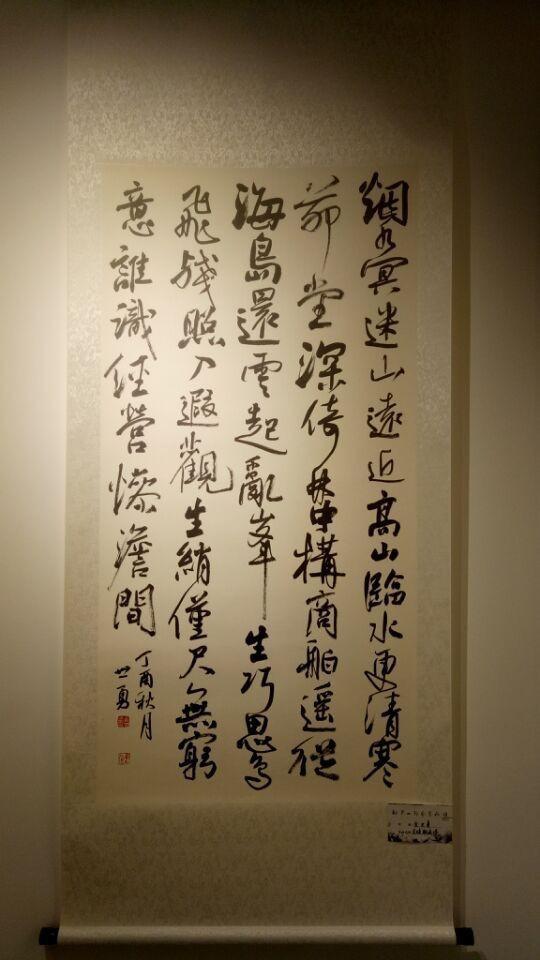 烟水冥迷山遠近高山臨水更清寒
茆堂深倚林中構商舶遥從
海島還雲起亂峯生巧思鳥
飛殘照入遐觀生綃僅尺無窮
意誰識經營慘澹間
丁酉秋月
世勇